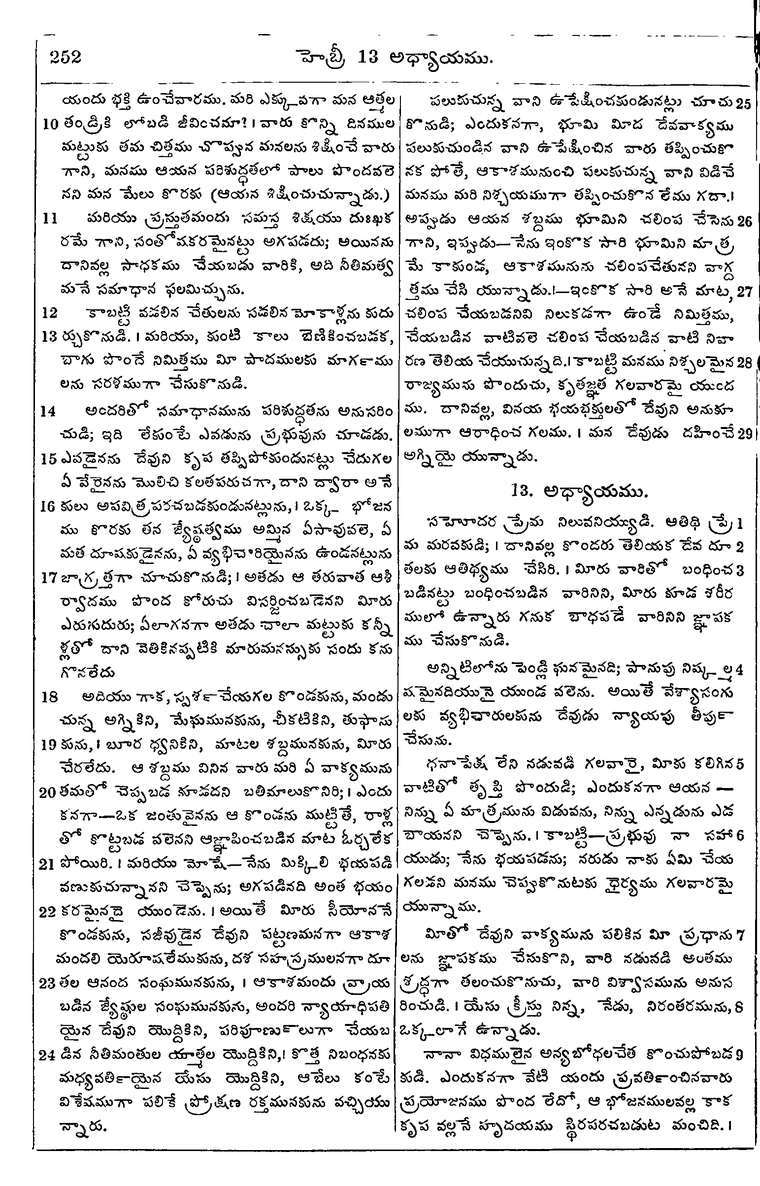 252
హెబ్రీ 13 అధ్యాయము.
యందు భక్తి ఉంచేవారము. మరి ఎక్కువగా మన ఆత్మల
10 తండ్రికి లోబడి జీవించమా?। వారు కొన్ని దినముల
మట్టుకు తమ చిత్తము చొప్పున మనలను శిక్షించే వారు
గాని, మనము ఆయన పరిశుద్ధతలో పాలు పొందవలె
నని మన మేలు కొరకు (ఆయన శిక్షించుచున్నాడు.)
11 మరియు ప్రస్తుతమందు సమస్త శిక్షయు దుఃఖక
రమే గాని, సంతోషకరమైనట్టు అగపడదు; అయినను
దానివల్ల సాధకము చేయబడు వారికి, అది నీతిమత్వ
మనే సమాధాన ఫలమిచ్చును.
12 కాబట్టి వడలిన చేతులను సడలిన మోకాళ్లను కుదు
13 ర్చుకొనుడి. । మరియు, కుంటి కాలు బెణికించబడక,
బాగు పొందే నిమిత్తము మీ పాదములకు మార్గము
లను సరళముగా చేసుకొనుడి.
14 అందరితో సమాధానమును పరిశుద్ధతను అనుసరిం
చుడి; ఇది లేకుంటే ఎవడును ప్రభువును చూడడు.
15 ఎవడైనను దేవుని కృప తప్పిపోకుండునట్లు చేదుగల
ఏ వేరైనను మొలిచి కలతపరుచగా, దాని ద్వారా అనే
16 కులు అపవిత్రపరచబడకుండునట్లును, । ఒక్క భోజన
ము కొరకు తన జ్యేష్ఠత్వము అమ్మిన ఏసావువలె, ఏ
మత దూషకుడైనను, ఏ వ్యభిచారియైనను ఉండనట్లును
17 జాగ్రత్తగా చూచుకొనుడి; । అతడు ఆ తరువాత ఆశీ
ర్వాదము పొంద కోరుచు విసర్జించబడెనని మీరు
ఎరుగుదురు; ఏలాగనగా అతడు చాలా మట్టుకు కన్నీ
ళ్లతో దాని వెతికినప్పటికి మారుమనస్సుకు సందు కను
గొనలేదు
18 అదియు గాక, స్పర్శ చేయగల కొండకును, మండు
చున్న అగ్నికిని, మేఘమునకును, చీకటికిని, తుఫాను
19 కును, । బూర ధ్వనికిని, మాటల శబ్దమునకును, మీరు
చేరలేదు. ఆ శబ్దము వినిన వారు మరి ఏ వాక్యమును
20 తమతో చెప్పబడ కూడదని బతిమాలుకొనిరి; । ఎందు
కనగా—ఒక జంతువైనను ఆ కొండను ముట్టితే, రాళ్ల
తో కొట్టబడ వలెనని ఆజ్ఞాపించబడిన మాట ఓర్చలేక
21 పోయిరి. । మరియు మోషే—నేను మిక్కిలి భయపడి
వణుకుచున్నానని చెప్పెను; అగపడినది అంత భయం
22 కరమైనదై యుండెను. । అయితే మీరు సీయోననే
కొండకును, సజీవుడైన దేవుని పట్టణమనగా ఆకాశ
మందలి యెరూషలేముకును, దశ సహస్రములనగా దూ
23 తల ఆనంద సంఘమునకును, । ఆకాశమందు వ్రాయ
బడిన జ్యేష్ఠుల సంఘమునకును, అందరి న్యాయాధిపతి
యైన దేవుని యొద్దికిని, పరిపూర్ణులుగా చేయబ
24 డిన నీతిమంతుల యాత్మల యొద్దికిని, । కొత్త నిబంధనకు
మధ్యవర్తియైన యేసు యొద్దికిని, ఆబేలు కంటే
విశేషముగా పలికే ప్రోక్షణ రక్తమునకును వచ్చియు
న్నారు.
పలుకుచున్న వాని ఉపేక్షించకుండునట్లు చూచు 25
కొనుడి; ఎందుకనగా, భూమి మీద దేవవాక్యము
పలుకుచుండిన వాని ఉపేక్షించిన వారు తప్పించుకొ
నక పోతే, ఆకాశమునుంచి పలుకుచున్న వాని విడిచే
మనము మరి నిశ్చయముగా తప్పించుకొన లేము గదా.।
అప్పుడు ఆయన శబ్దము భూమిని చలింప చేసెను 26
గాని, ఇప్పుడు—నేను ఇంకొక సారి భూమిని మాత్ర
మే కాకుండ, ఆకాశమునును చలింపచేతునని వాగ్ద
త్తము చేసి యున్నాడు.।—ఇంకొక సారి అనే మాట, 27
చలింప చేయబడనివి నిలుకడగా ఉండే నిమిత్తము,
చేయబడిన వాటివలె చలింప చేయబడిన వాటి నివా
రణ తెలియ చేయుచున్నది.। కాబట్టి మనము నిశ్చలమైన 28
రాజ్యమును పొందుచు, కృతజ్ఞత గలవారమై యుంద
ము. దానివల్ల, వినయ భయభక్తులతో దేవుని అనుకూ
లముగా ఆరాధించ గలము. । మన దేవుడు దహించే 29
అగ్నియై యున్నాడు.
13. అధ్యాయము.
సహోదర ప్రేమ నిలువనియ్యుడి. ఆతిథి ప్రే 1
మ మరవకుడి; । దానివల్ల కొందరు తెలియక దేవ దూ 2
తలకు ఆతిథ్యము చేసిరి. । మీరు వారితో బంధించ 3
బడినట్టు బంధించబడిన వారినిని, మీరు కూడ శరీర
ములో ఉన్నారు గనుక బాధపడే వారినిని జ్ఞాపక
ము చేసుకొనుడి.
అన్నిటిలోను పెండ్లి ఘనమైనది; పానుపు నిష్కల్మ 4
షమైనదియునై యుండ వలెను. అయితే వేశ్యాసంగు
లకు వ్యభిచారులకును దేవుడు న్యాయపు తీర్పు
చేసును.
ధనాపేక్ష లేని నడువడి గలవారై, మీకు కలిగిన 5
వాటితో తృప్తి పొందుడి; ఎందుకనగా ఆయన —
నిన్ను ఏ మాత్రమును విడువను, నిన్ను ఎన్నడును ఎడ
బాయనని చెప్పెను. । కాబట్టి—ప్రభువు నా సహా 6
యుడు; నేను భయపడను; నరుడు నాకు ఏమి చేయ
గలడని మనము చెప్పుకొనుటకు ధైర్యము గలవారమై
యున్నాము.
మీతో దేవుని వాక్యమును పలికిన మీ ప్రధాను 7
లను జ్ఞాపకము చేసుకొని, వారి నడునడి అంతము
శ్రద్ధగా తలంచుకొనుచు, వారి విశ్వాసమును అనుస
రించుడి. । యేసు క్రీస్తు నిన్న, నేడు, నిరంతరమును, 8
ఒక్కలాగే ఉన్నాడు.
నానా విధములైన అన్యబోధలచేత కొంచుపోబడ 9
కుడి. ఎందుకనగా వేటి యందు ప్రవర్తించినవారు
ప్రయోజనము పొంద లేదో, ఆ భోజనములవల్ల కాక
కృప వల్లనే హృదయము స్థిరపరచబడుట మంచిది. ।